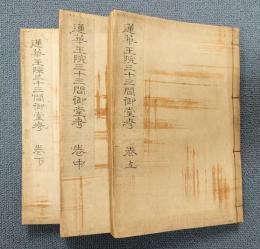 蓮華王院三十三間御堂考 巻上
蓮華王院三十三間御堂考 巻中
蓮華王院三十三間御堂考 巻下